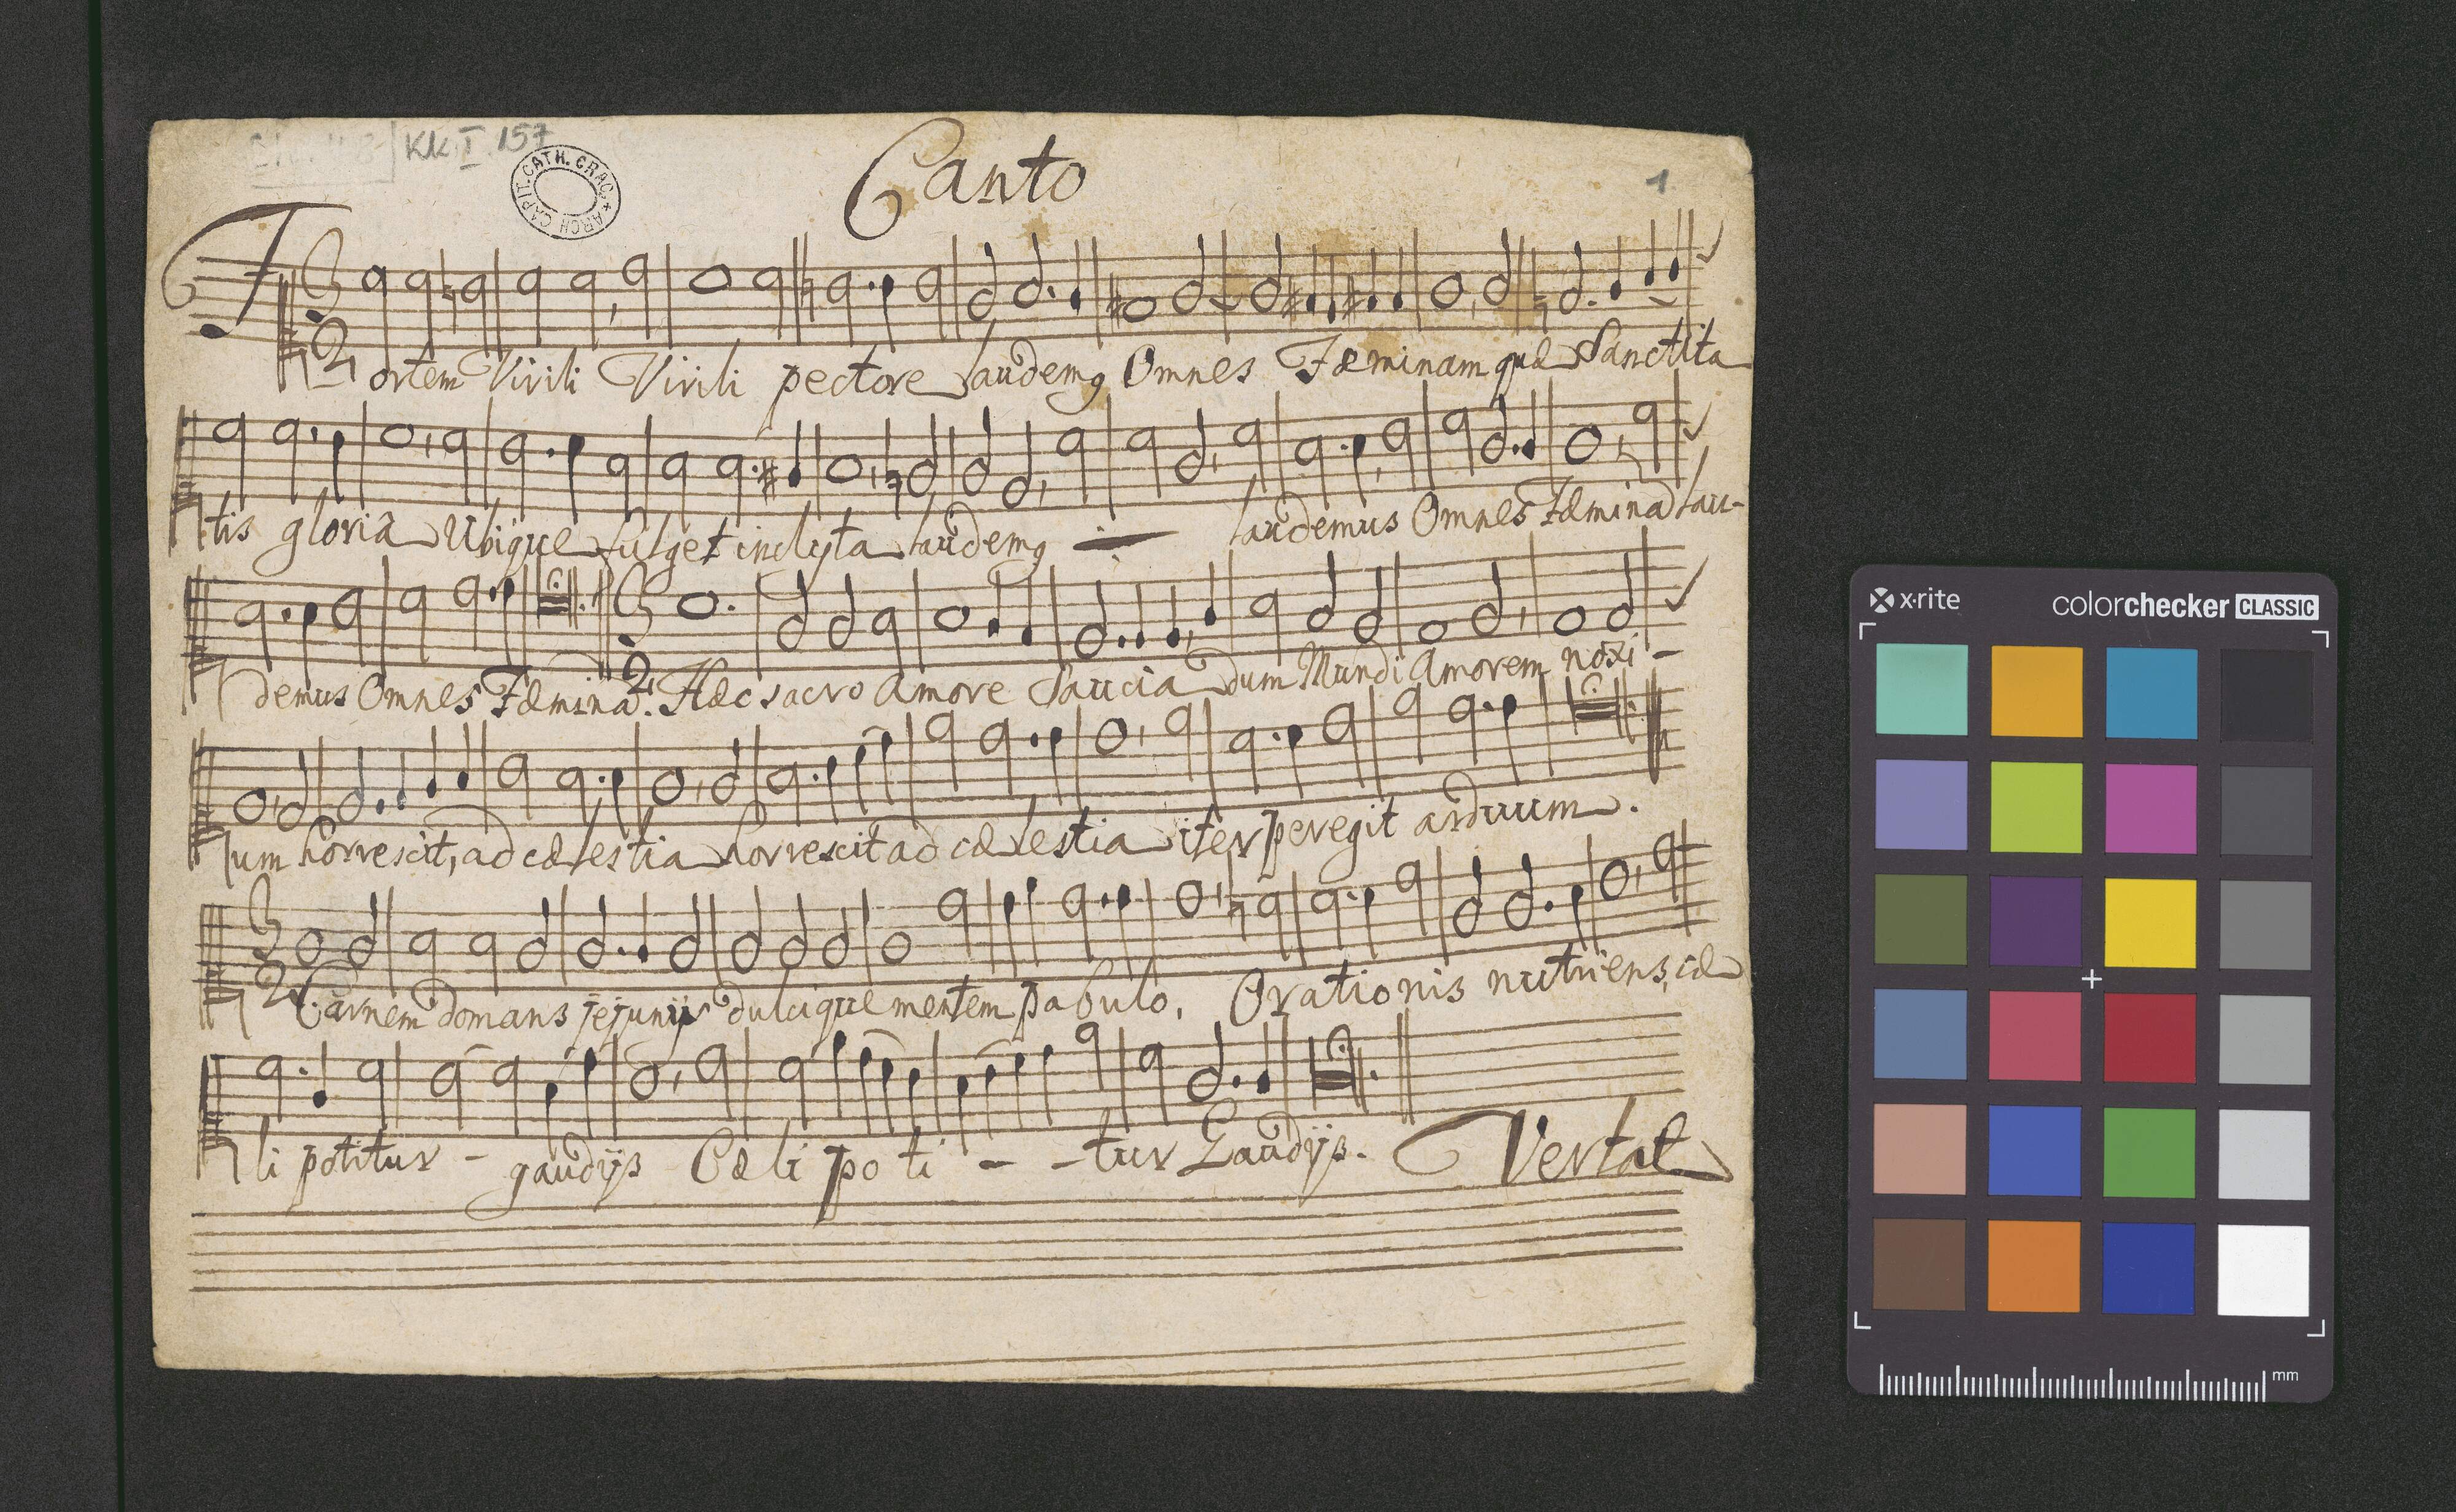 KK. I. 157
ARCH. CAPIT. CATH. CRAC.
Canto
1
Fortem Virili Virili pectore laudemq Omnes Fæminam quæ Sanctita
tis gloria Ubique fulget inclyta laudemq laudemus Omnes Fæmina lau-
demus Omnes Fæmina. Hæc sacro Amore Saucia dum Mundi Amorem noxi -
um horrescit, ad cælestia horrescit ad cælestia iter peregit arduum.
Carnem domans jejunijs dulcique mentem pabulo, Orationis nutriens, cæ
li potitur - gaudijs Cæli po ti - - tur Gaudijs. Vertat
x·rite colorchecker CLASSIC
mm